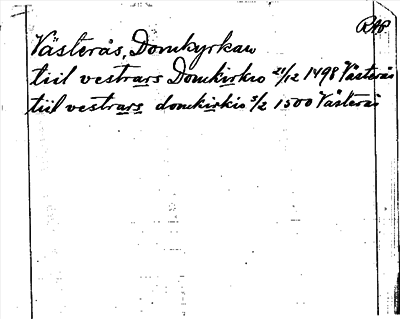 RAP
Västerås, Domkyrkan
tiil vestrars Domkirkio 21/12 1498 Västerås
tiil vestrars domkirkio 3/2 1500 Västerås